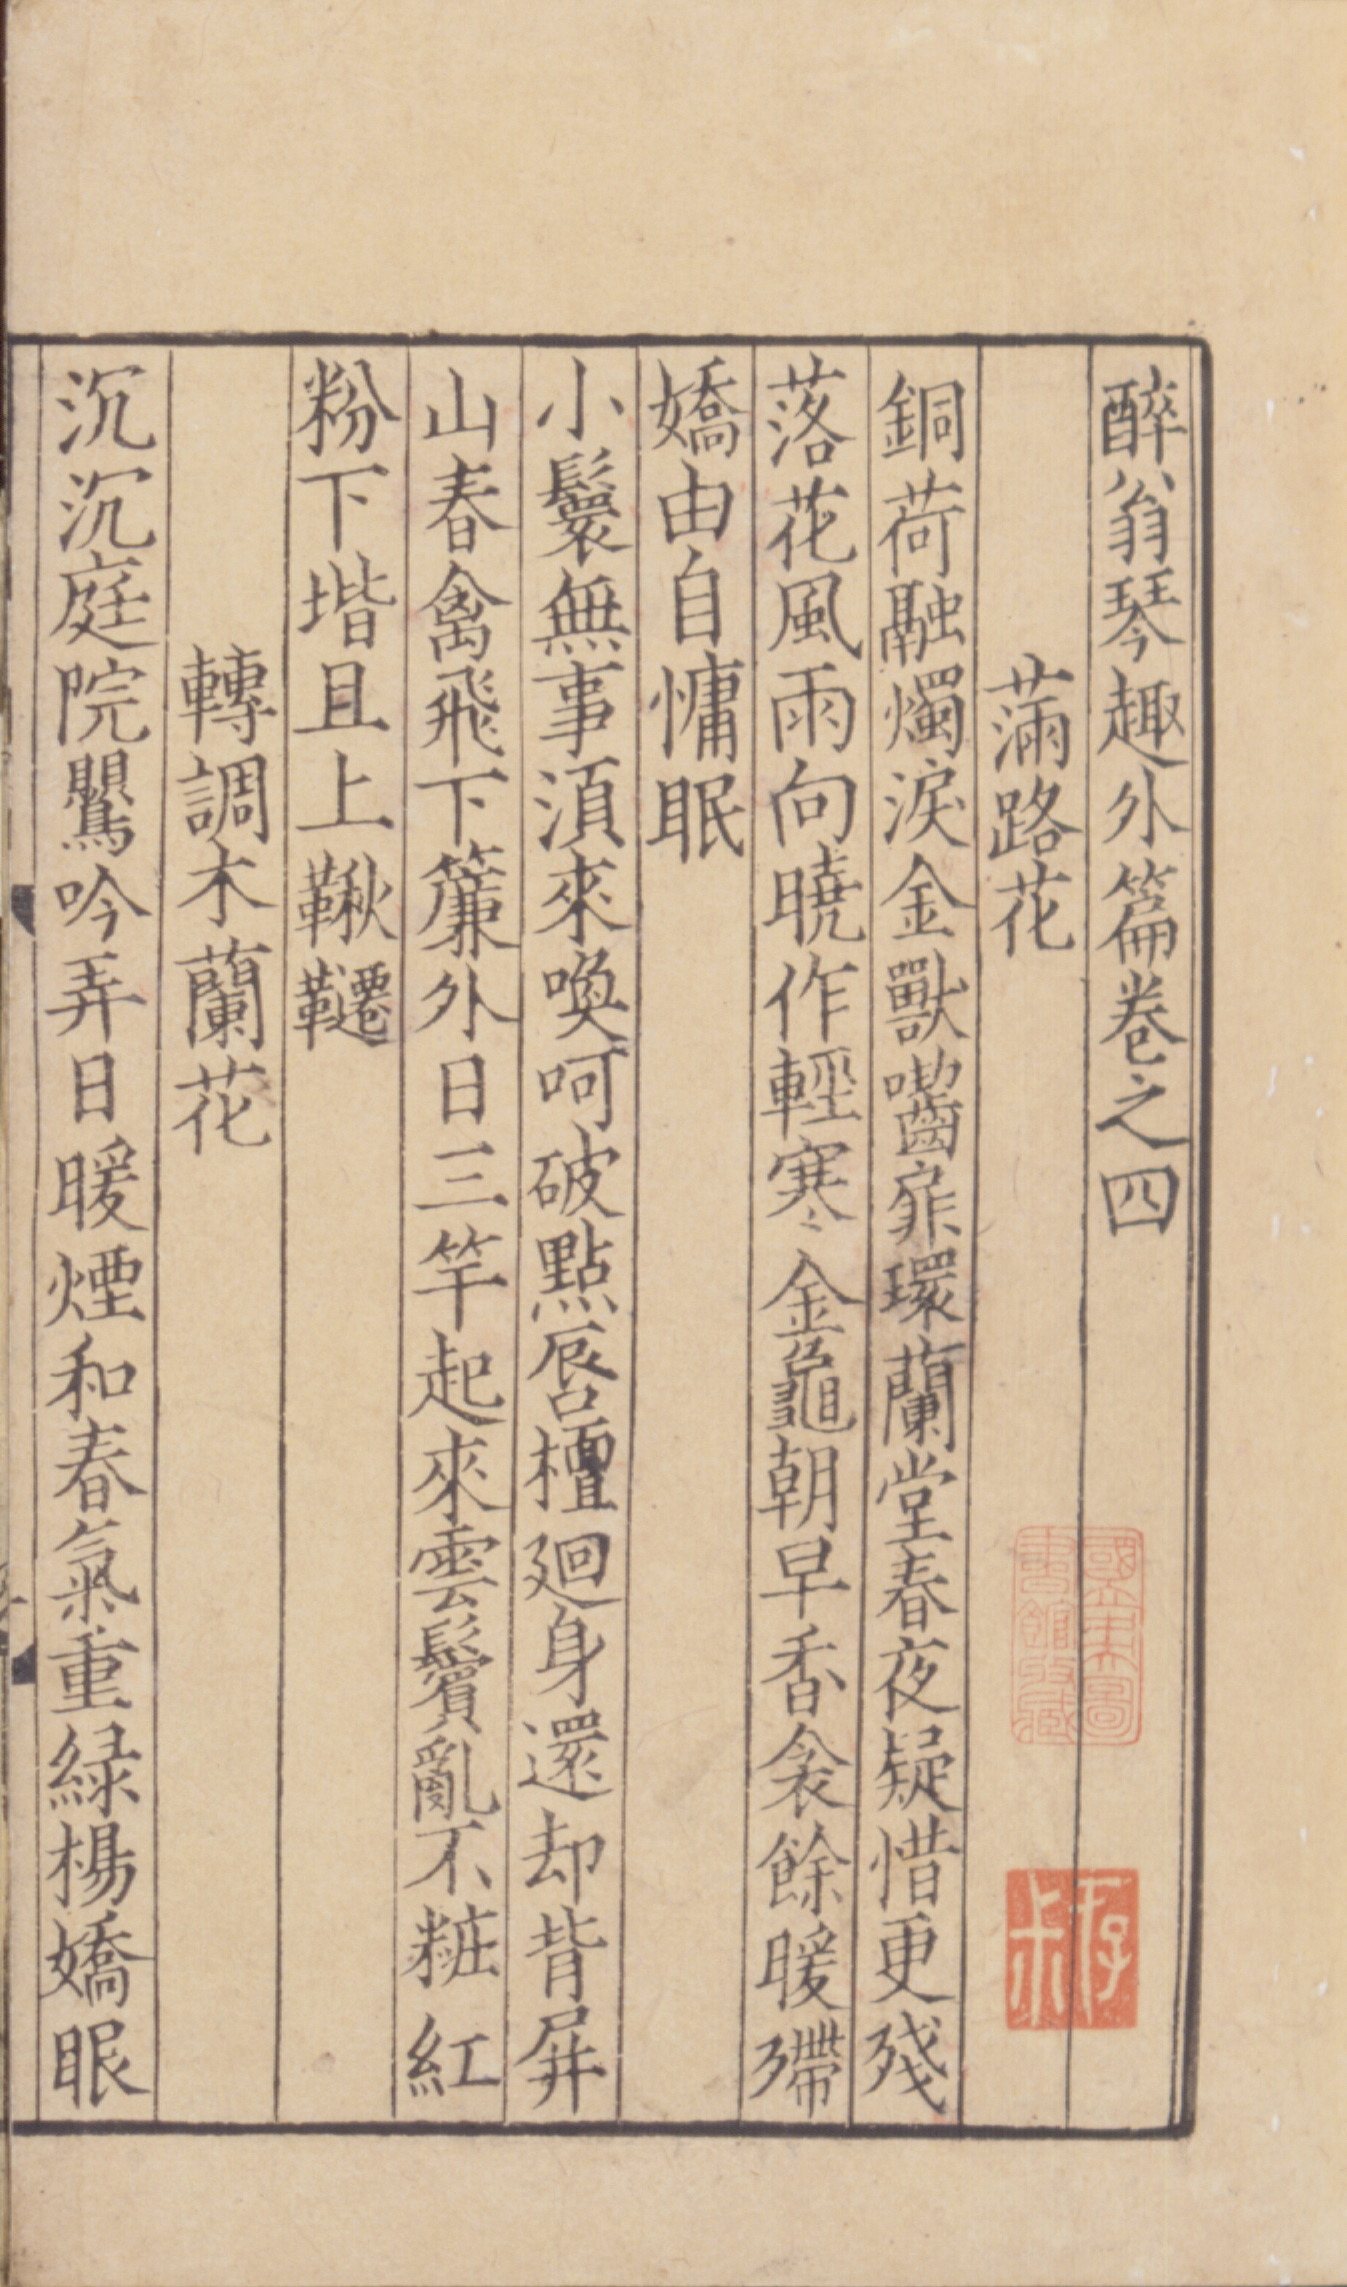 醉翁琴趣外篇卷之四
滿路花
銅荷融燭淚金獸囓扉環蘭堂春夜疑惜更殘
落花風雨向曉作輕寒金龜朝早香衾餘暖殢
嬌由自慵眠
小鬟無事湏來喚呵破點唇檀廻身還却背屛
山春禽飛下簾外日三竿起來雲鬢亂不粧紅
粉下堦且上鞦韆
轉調木蘭花
沉沉庭院鸎吟弄日暖煙和春氣重綠楊嬌眼
國立東圖
書館收藏